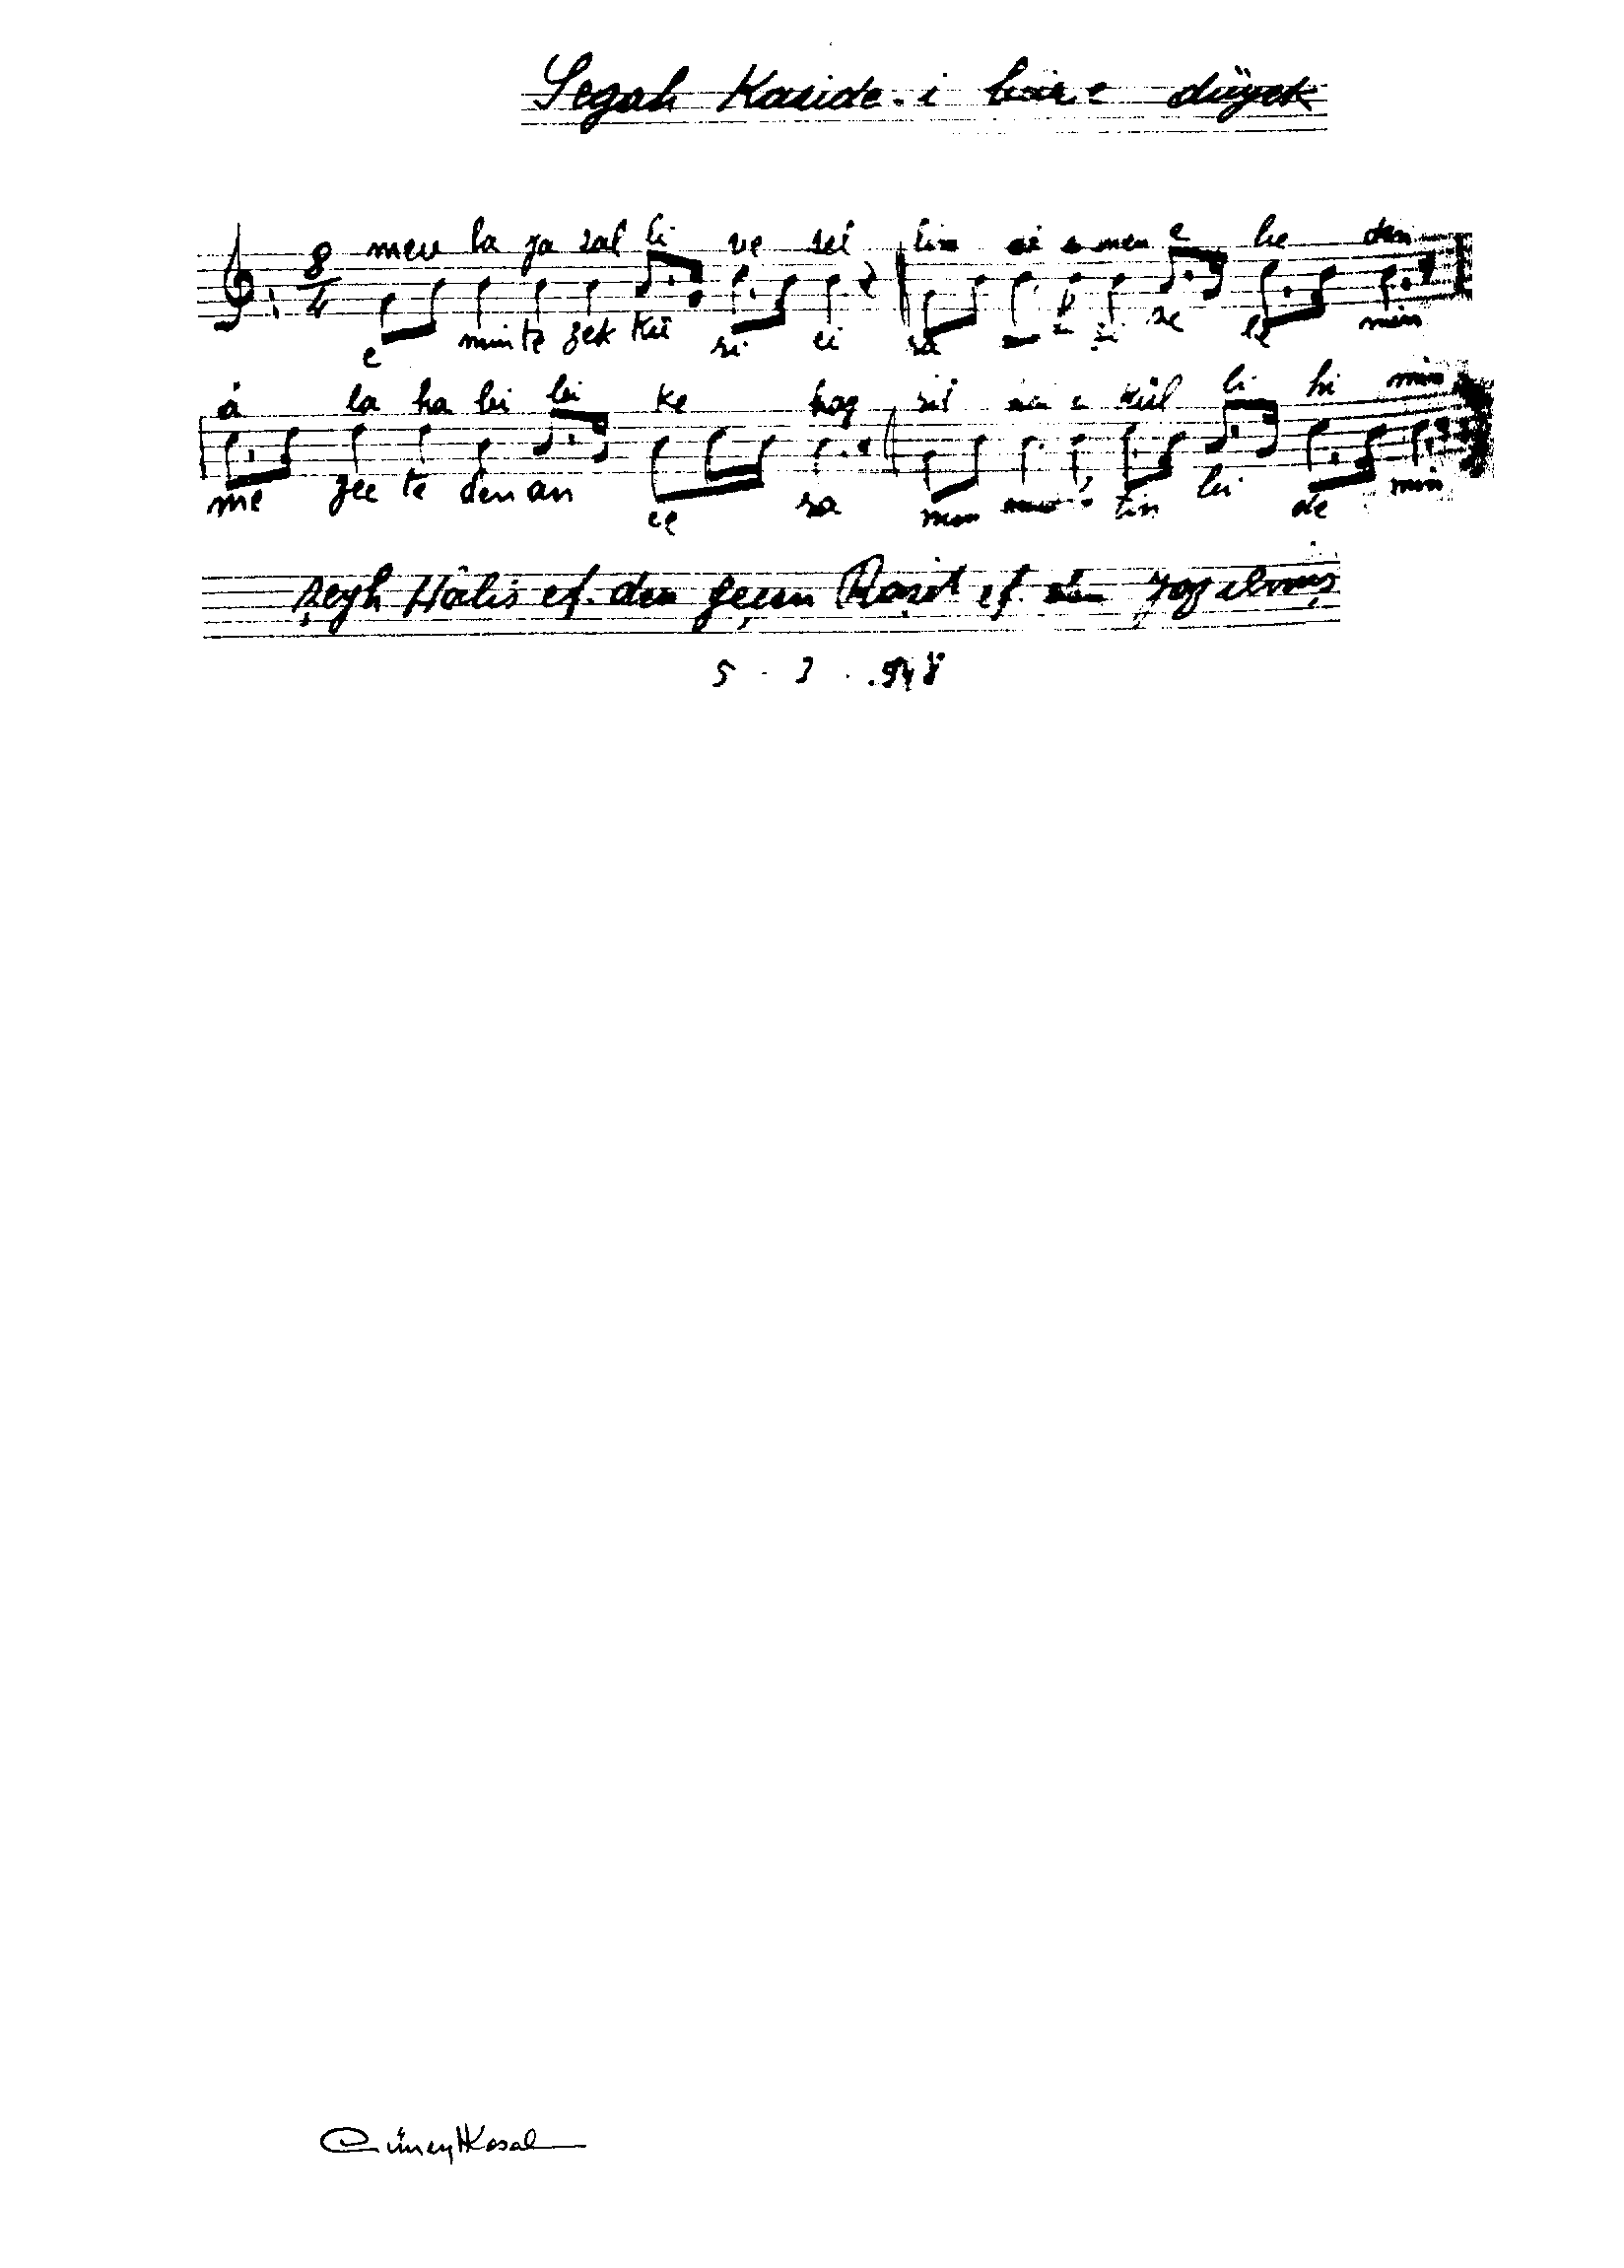 Segah Kaside-i düyek
8
4
mev la ya sal li ve sel lim men e be den
e min te zek kü ri ci ra ze le min
â la ha bi bi ke hay ril kül li hi min
me zec te den an ce ra men tin bi de min
Şeyh Hâlis ef. den geçen Raşit ef den yazılmış
5 . 3 . .948
Cüneyt Kosal